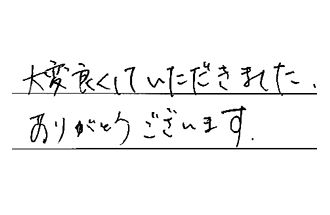 大変良くしていただきました.
ありがとうございます.